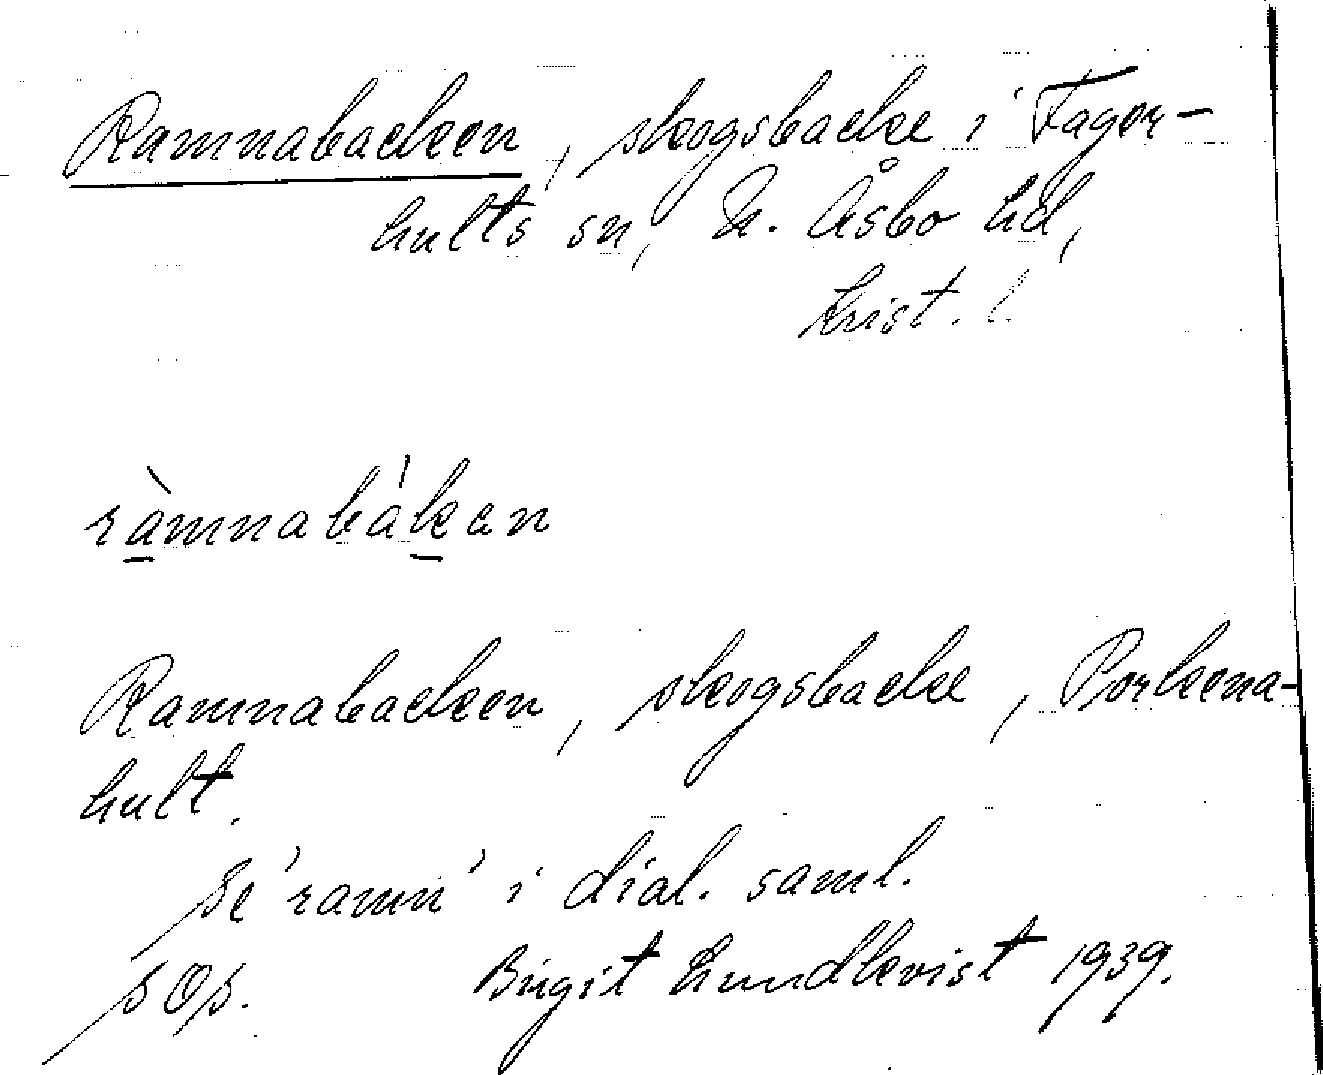 Ramnabacken, skogsbacke i Fager-
hults sn, N. Åsbo hd,
Krist. l.
ràmnabákan
Ramnabacken, skogsbacke, Porkena-
hult.
Se 'ramn' i dial. saml.
Birgit Lundkvist 1939.